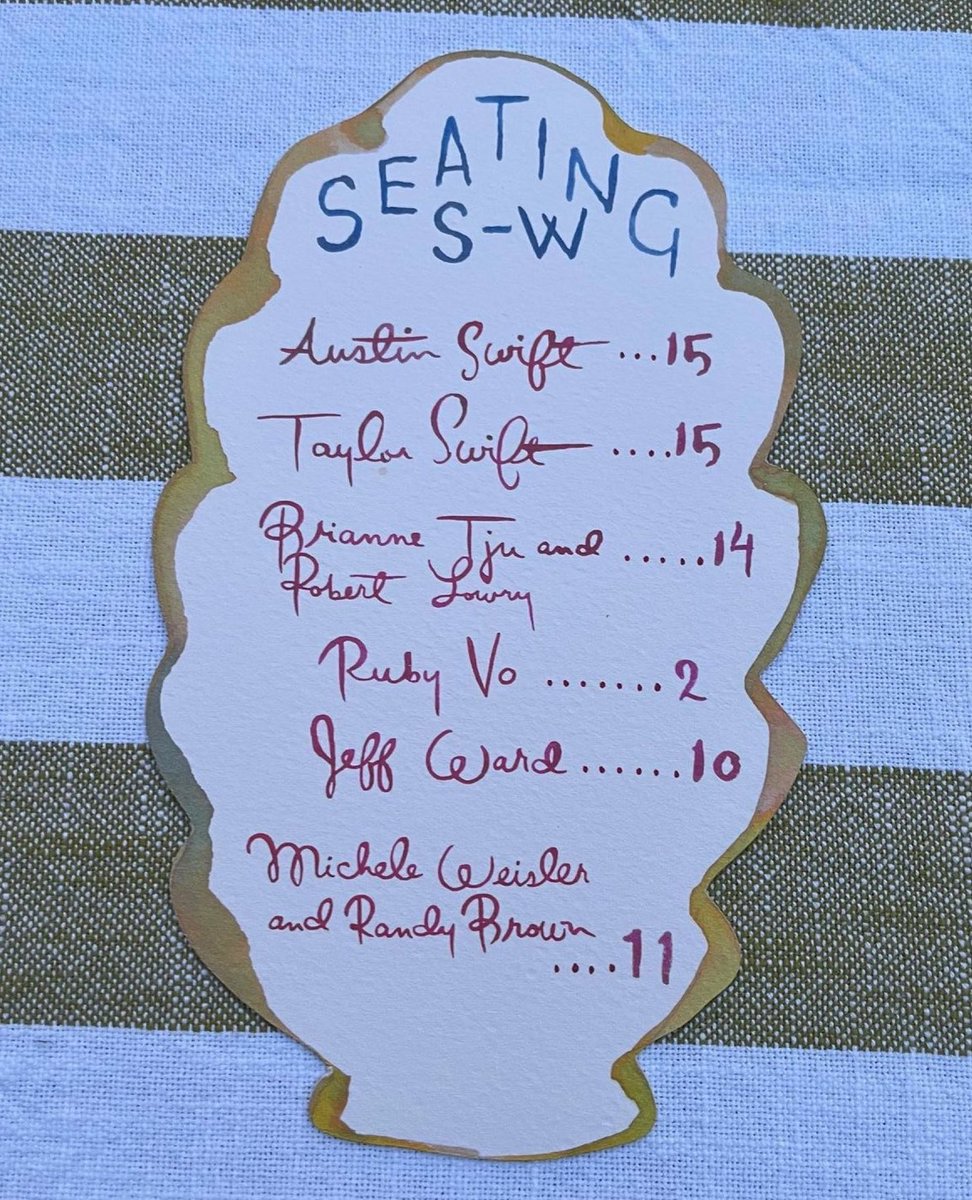 SEATING
S-W
Austin Swift ...15
Taylor Swift ....15
Brianne Tju and .....14
Robert Lowry
Ruby Vo .......2
Jeff Ward ......10
Michele Weisler
and Randy Brown
....11